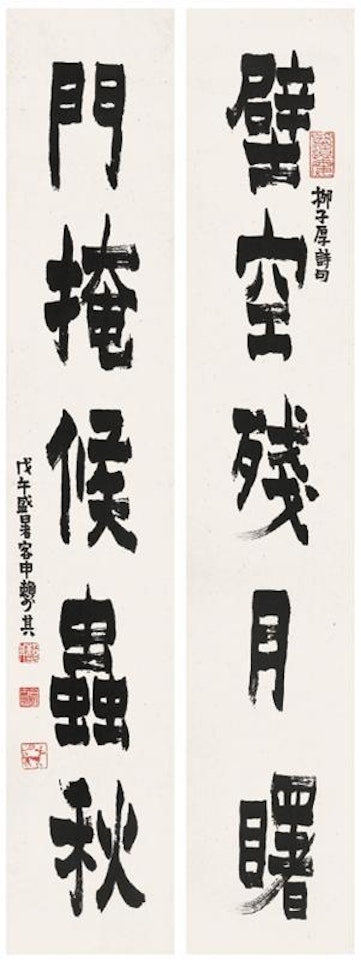 柳子厚詩句
壁空殘月曙
門掩候蟲秋
戊午盛暑客申賴少其